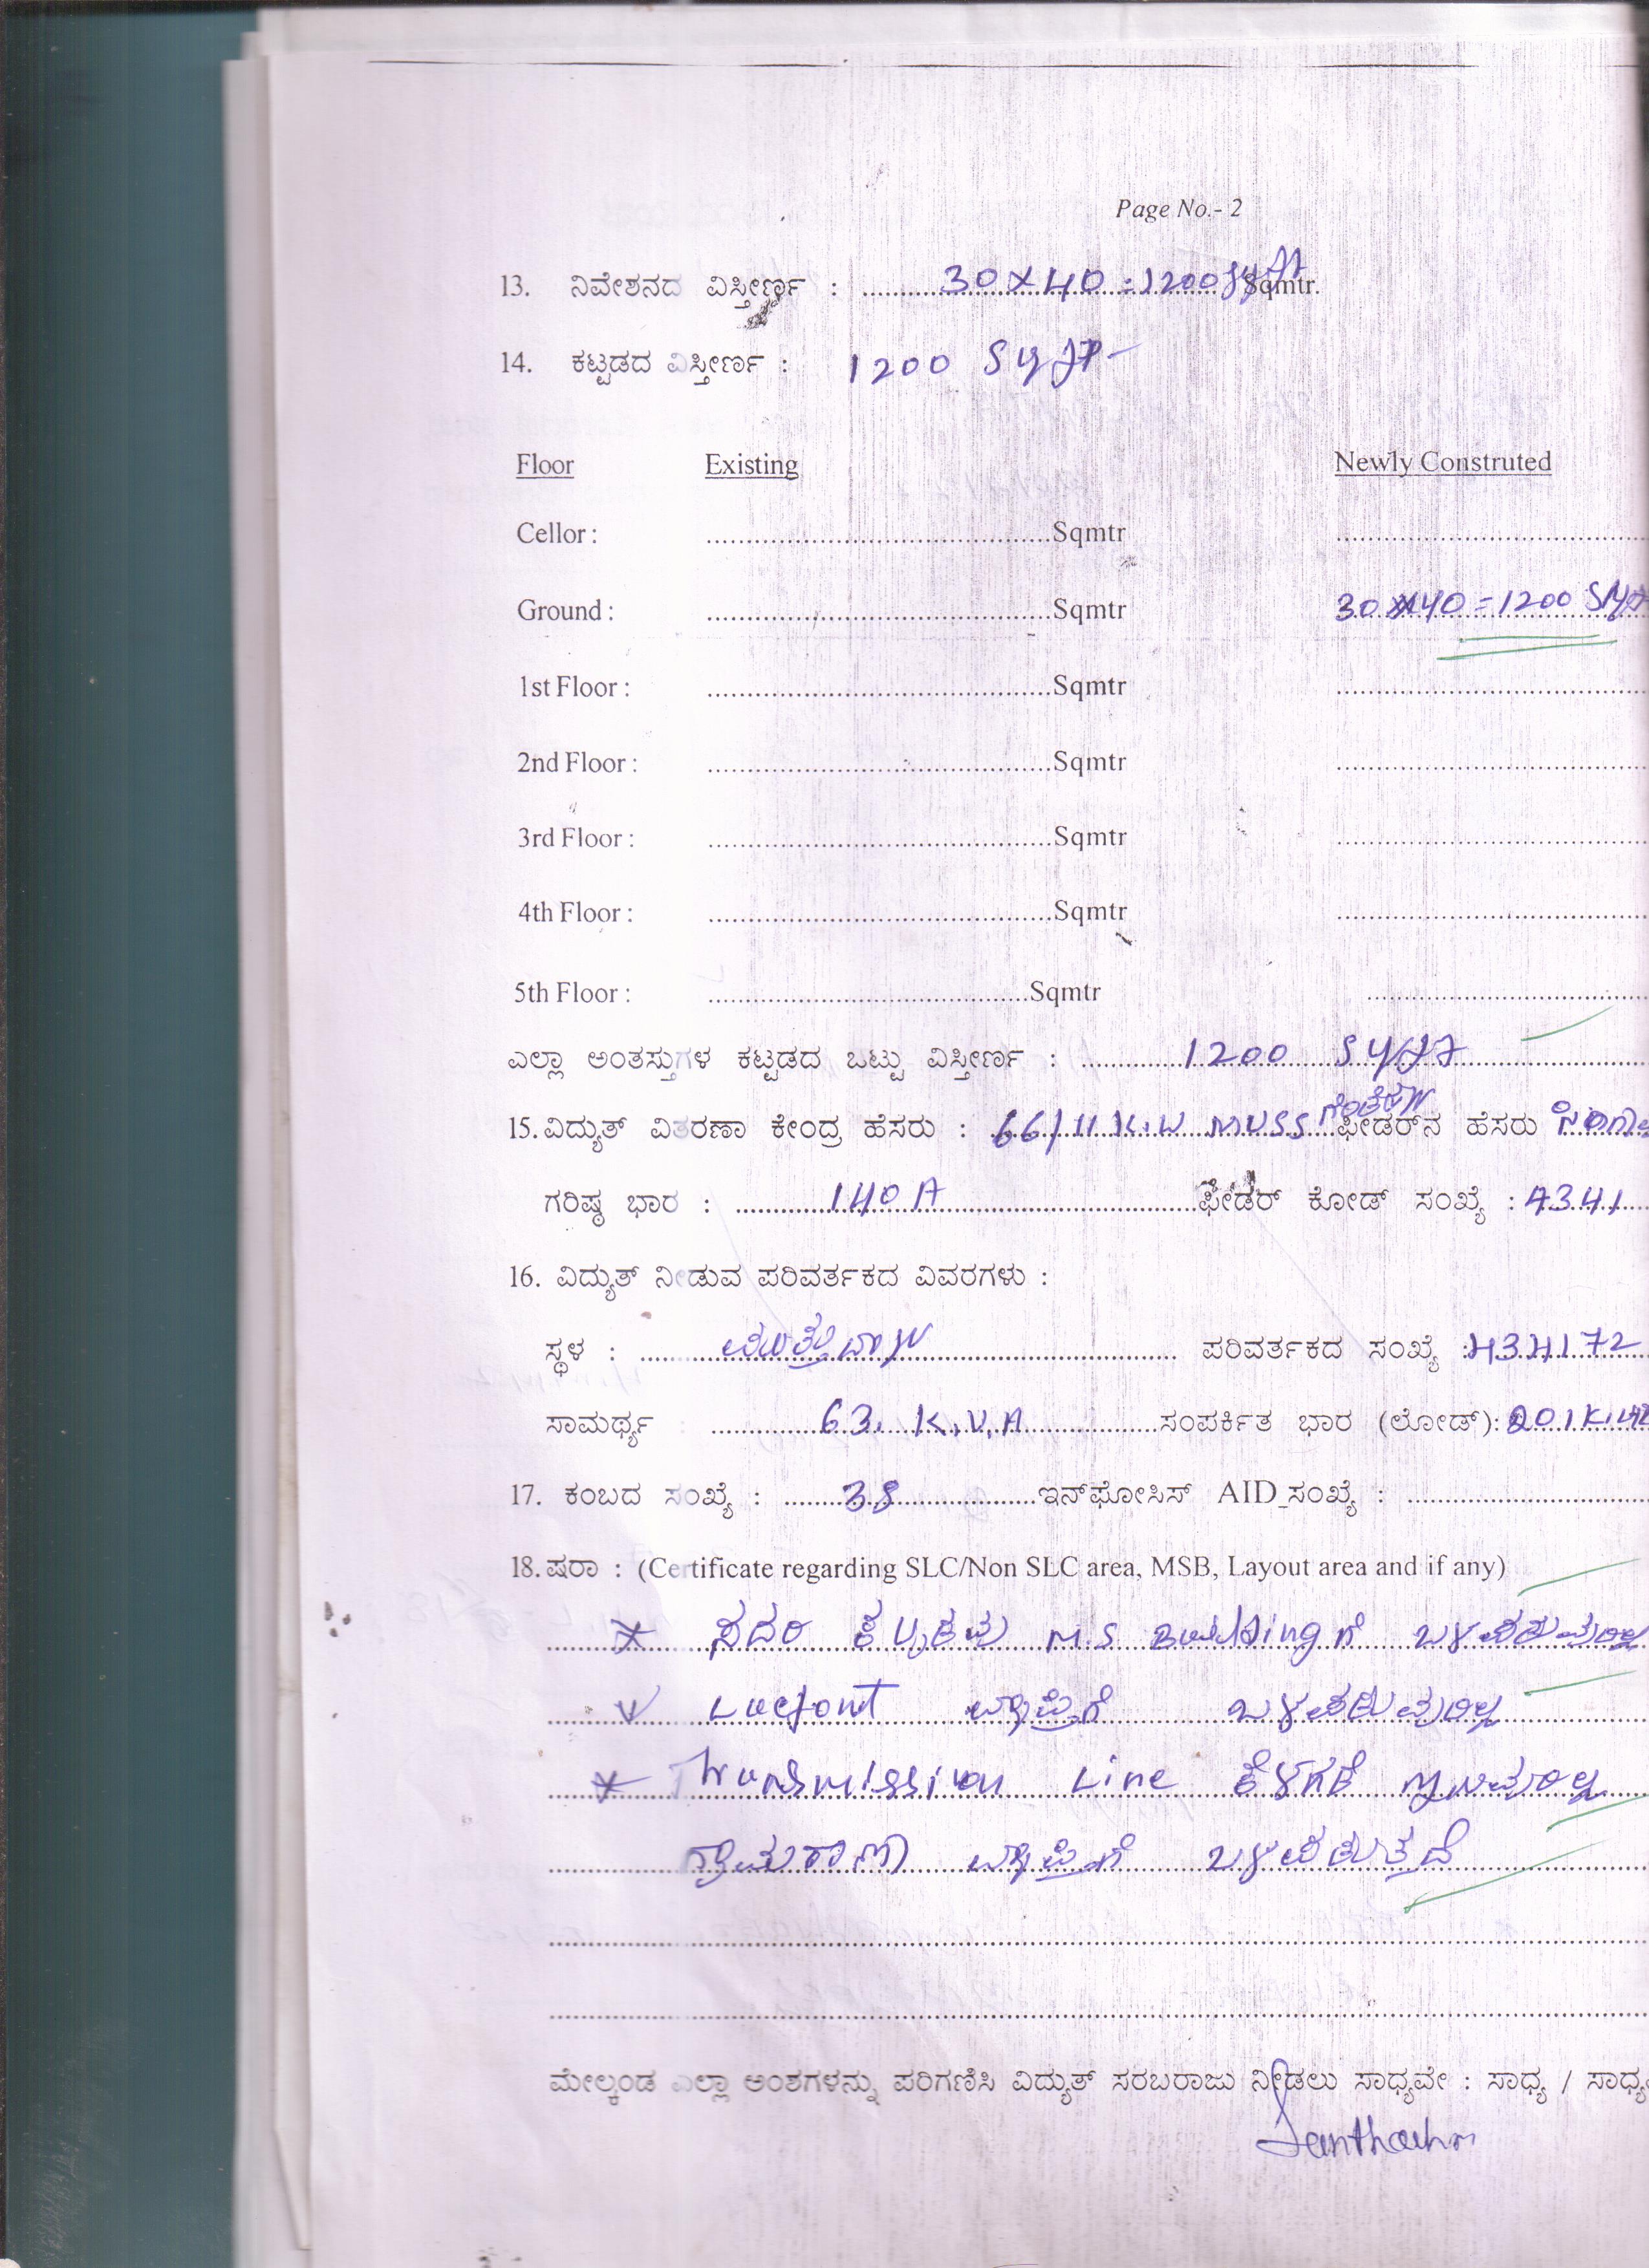 Page No.- 2
13. ನಿವೇಶನದ ವಿಸ್ತೀರ್ಣ : 30 x 40 = 1200 Sqft Sqmtr.
14. ಕಟ್ಟಡದ ವಿಸ್ತೀರ್ಣ : 1200 Sqft
Floor Existing Newly Construted
Cellor : Sqmtr
Ground : Sqmtr 30 x 40 = 1200 Sqft
1st Floor : Sqmtr
2nd Floor : Sqmtr
3rd Floor : Sqmtr
4th Floor : Sqmtr
5th Floor : Sqmtr
ಎಲ್ಲಾ ಅಂತಸ್ತುಗಳ ಕಟ್ಟಡದ ಒಟ್ಟು ವಿಸ್ತೀರ್ಣ : 1200 Sqft
15. ವಿದ್ಯುತ್ ವಿತರಣಾ ಕೇಂದ್ರ ಹೆಸರು : 66/11 K.V MUSS ಫೀಡರ್‌ನ ಹೆಸರು
ಗರಿಷ್ಠ ಭಾರ : 140 A ಫೀಡರ್ ಕೋಡ್ ಸಂಖ್ಯೆ :
16. ವಿದ್ಯುತ್ ನೀಡುವ ಪರಿವರ್ತಕದ ವಿವರಗಳು :
ಸ್ಥಳ : ಪರಿವರ್ತಕದ ಸಂಖ್ಯೆ : 434172
ಸಾಮರ್ಥ್ಯ : 63. K.V.A ಸಂಪರ್ಕಿತ ಭಾರ (ಲೋಡ್):
17. ಕಂಬದ ಸಂಖ್ಯೆ : 38 ಇನ್‌ಫೋಸಿಸ್ AID ಸಂಖ್ಯೆ :
18. ಷರಾ : (Certificate regarding SLC/Non SLC area, MSB, Layout area and if any)
ಸದರಿ ಕಟ್ಟಡವು M.S Buildingಗೆ ಒಳಪಡುವುದಿಲ್ಲ
Layout ವ್ಯಾಪ್ತಿಗೆ ಒಳಪಡುವುದಿಲ್ಲ
Transmission Line ಕೆಳಗಡೆ
ವ್ಯಾಪ್ತಿಗೆ ಒಳಪಡುತ್ತದೆ
ಮೇಲ್ಕಂಡ ಎಲ್ಲಾ ಅಂಶಗಳನ್ನು ಪರಿಗಣಿಸಿ ವಿದ್ಯುತ್ ಸರಬರಾಜು ನೀಡಲು ಸಾಧ್ಯವೇ : ಸಾಧ್ಯ /